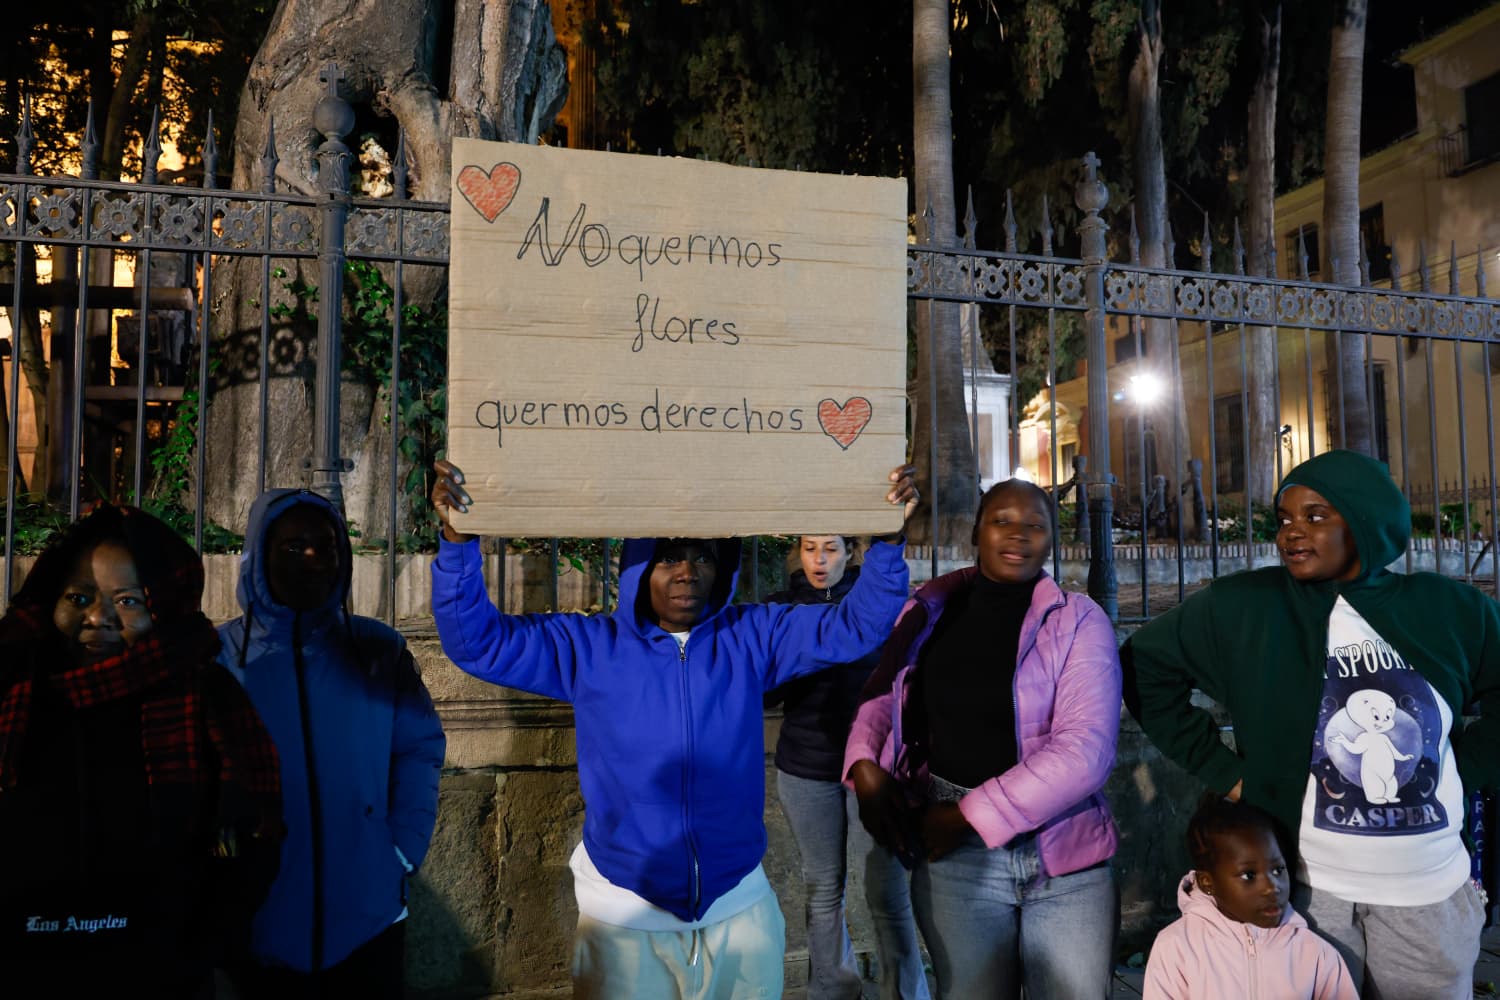 No quermos
flores
quermos derechos
Los Angeles
SPOOKY
CASPER